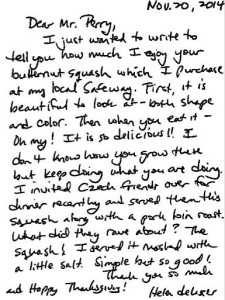 Nov. 20, 2014
Dear Mr. Perry,
I just wanted to write to
tell you how much I enjoy your
butternut squash which I purchase
at my local Safeway. First, it is
beautiful to look at - both shape
and color. Then when you eat it -
Oh my! It is so delicious!! I
don't know how you grow these
but keep doing what you are doing.
I invited Czech friends over for
dinner recently and served them this
squash along with a pork loin roast.
What did they rave about? The
squash! I served it mashed with
a little salt. Simple but so good!
Thank you so much
and Happy Thanksgiving!